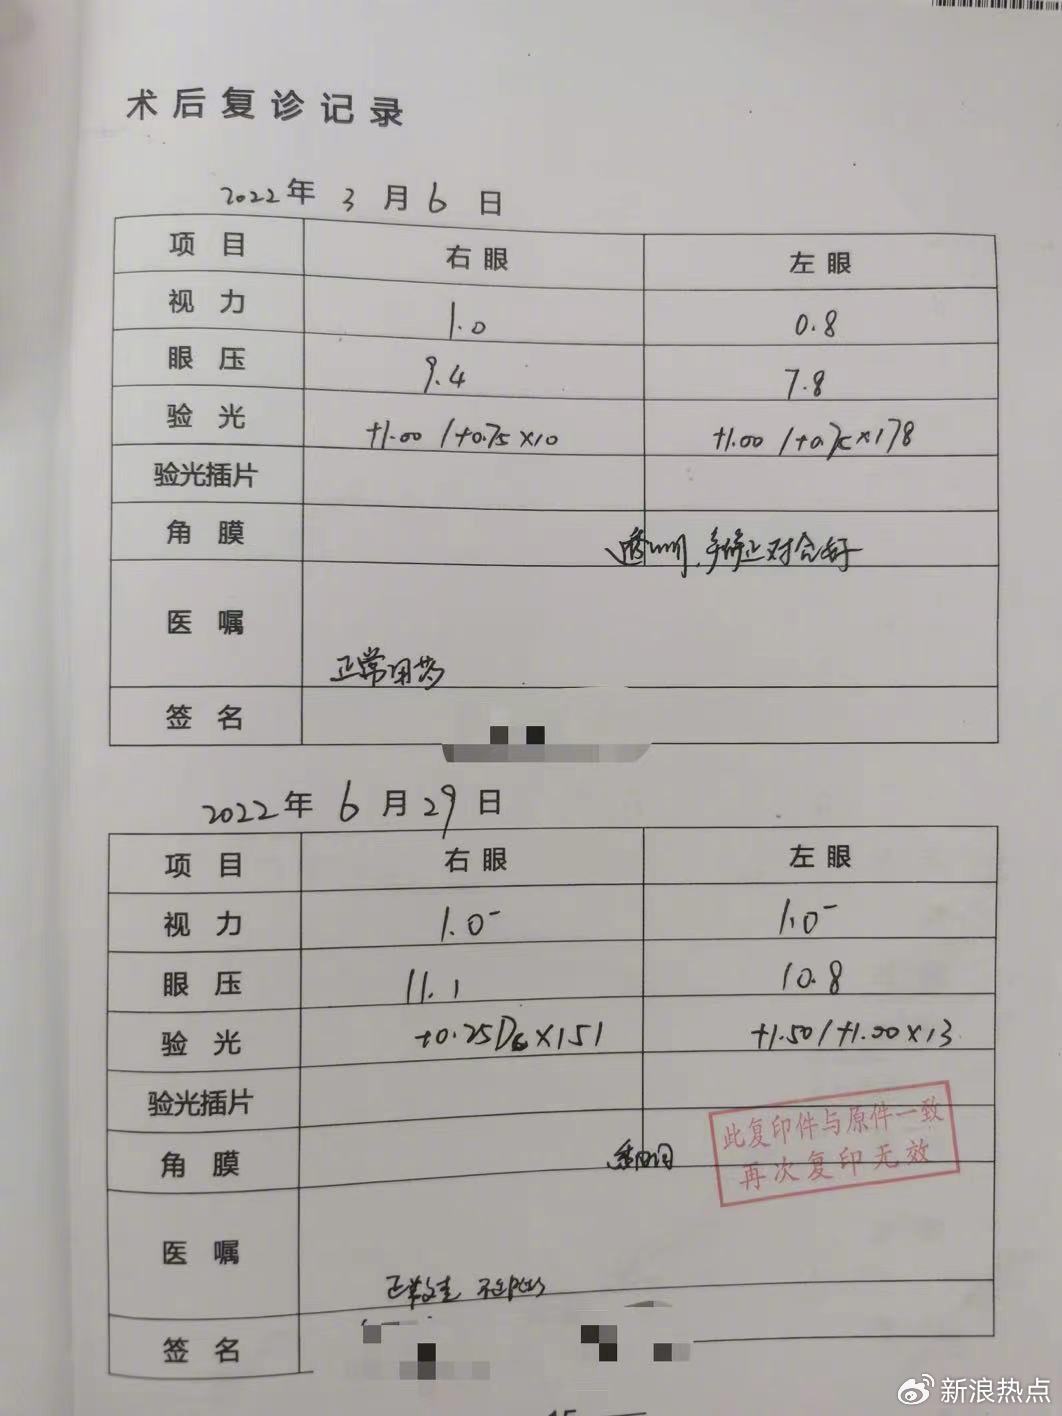 术后复诊记录
2022年 3 月 6 日
项 目 右眼 左眼
视 力 1.0 0.8
眼 压 9.4 7.8
验 光 +1.00 /+0.75×10 +1.00 /+0.75×178
验光插片
角 膜 透明, 对合好
医 嘱 正常用药
签 名
2022年 6 月 29 日
项 目 右眼 左眼
视 力 1.0⁻ 1.0⁻
眼 压 11.1 10.8
验 光 +0.25Dc×151 +1.50/+1.00×13
验光插片
角 膜 透明
此复印件与原件一致
再次复印无效
医 嘱 正常
签 名
15
新浪热点